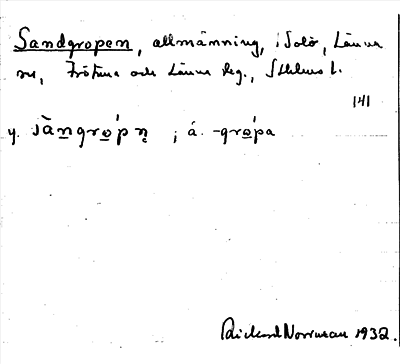 Sandgropen, allmänning, i Solö, Länna
sn, Frötuna och Länna skg., Sthlms l.
141
y. sàngro̱´pn̥ ; á. -gro̱´pa
Rickard Norrman 1932.